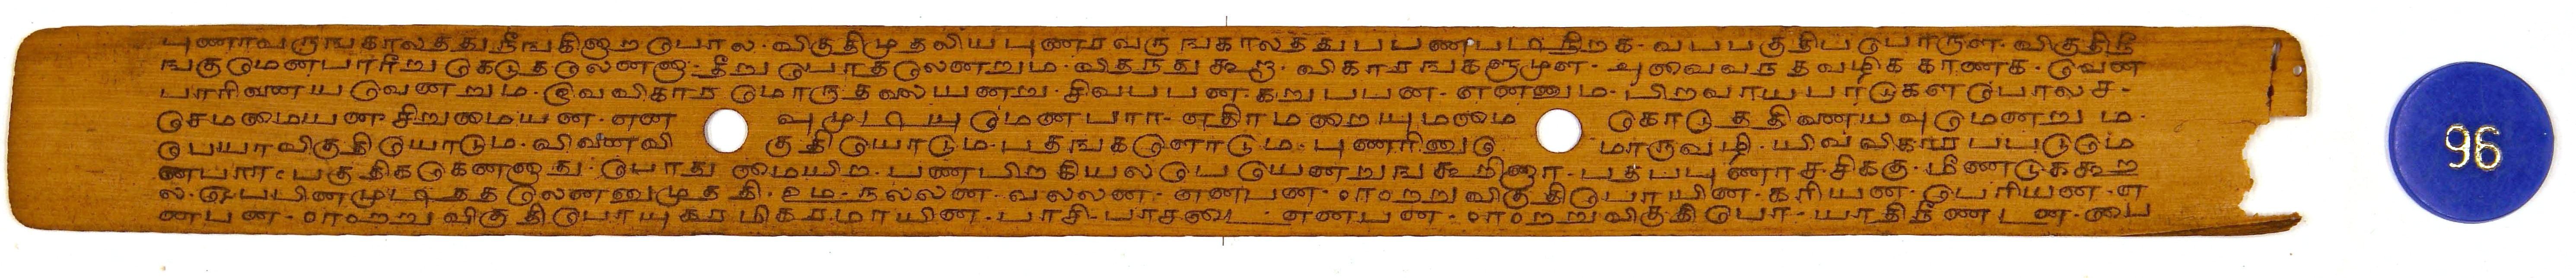 புணரவருங காலத்து நீங்கிஜற போல - விகுதிமுதலிய புணர வருஙகாலதது பபணபடிநிறக - வபபகுதிபபொருள - விகுதிநீ
ஙகுமெனபாரீறு கெடுதலெனனு - தீறு போதலெனறும - விதநது கூறா - விகாரஙகளுமுள - அவைவநதவழிக காணக - வெண
பாரிவணயவெனறும - இவவிகார மொருதலையனறு - சிவபபன - கறுபபன - எனனும - பிறவாயபாடுகளபோலச -
செமமையன - சிறுமையன - என வுமுடியுமெனபார - எதிரமறையுமமை கொடுததிணையவுமெனறும -
பெயரவிகுதியோடும - வினைவி குதியோடும - பதஙகளோடும - புணரினு மொருவழி - யிவவிகாரபபடும
எனபார - பகுதிககெனனாது - பொது மையிற - பணபிறகியலபேயெனறுங கூறினார - பதபபுணரசசிககு - மீணடுககூற
ல - ஈறபபினமுடிததலெனனுமுததி - உம - நலலன - வலலன - எனபன - ஈறறுவிகுதிபோயின - கரியன - பெரியன - எ
னபன - ஈறறுவிகுதிபோயுகரமிகரமாயின - பாசி - பாசடை - எனபன - ஈறறுவிகுதிபோ - யாதிநீணடன - பை
96